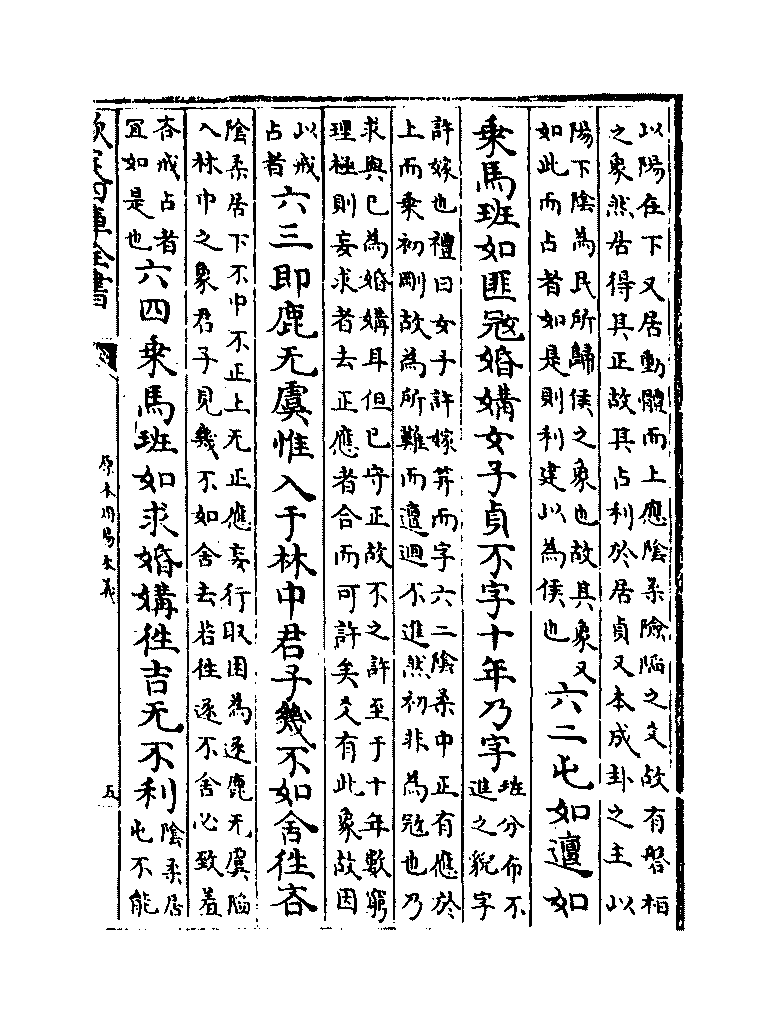 以陽在下又居動體而上應陰柔險陷之爻故有磐桓
之象然居得其正故其占利於居貞又本成卦之主以
陽下陰為民所歸侯之象也故其象又
如此而占者如是則利建以為侯也
六二屯如邅如
乗馬班如匪冦婚媾女子貞不字十年乃字
班分布不
進之貌字
許嫁也禮曰女子許嫁笄而字六二陰柔中正有應於
上而乗初剛故為所難而邅迴不進然初非為冦也乃
求與已為婚媾耳但已守正故不之許至于十年數窮
理極則妄求者去正應者合而可許矣爻有此象故因
以戒
占者
六三即鹿无虞惟入于林中君子㡬不如舍徃吝
陰柔居下不中不正上无正應妄行取困為逐鹿无虞陷
入林中之象君子見㡬不如舍去若徃逐不舍必致羞
吝戒占者
宜如是也
六四乗馬班如求婚媾徃吉无不利
陰柔居
屯不能
欽定四庫全書
原本周易本義
五